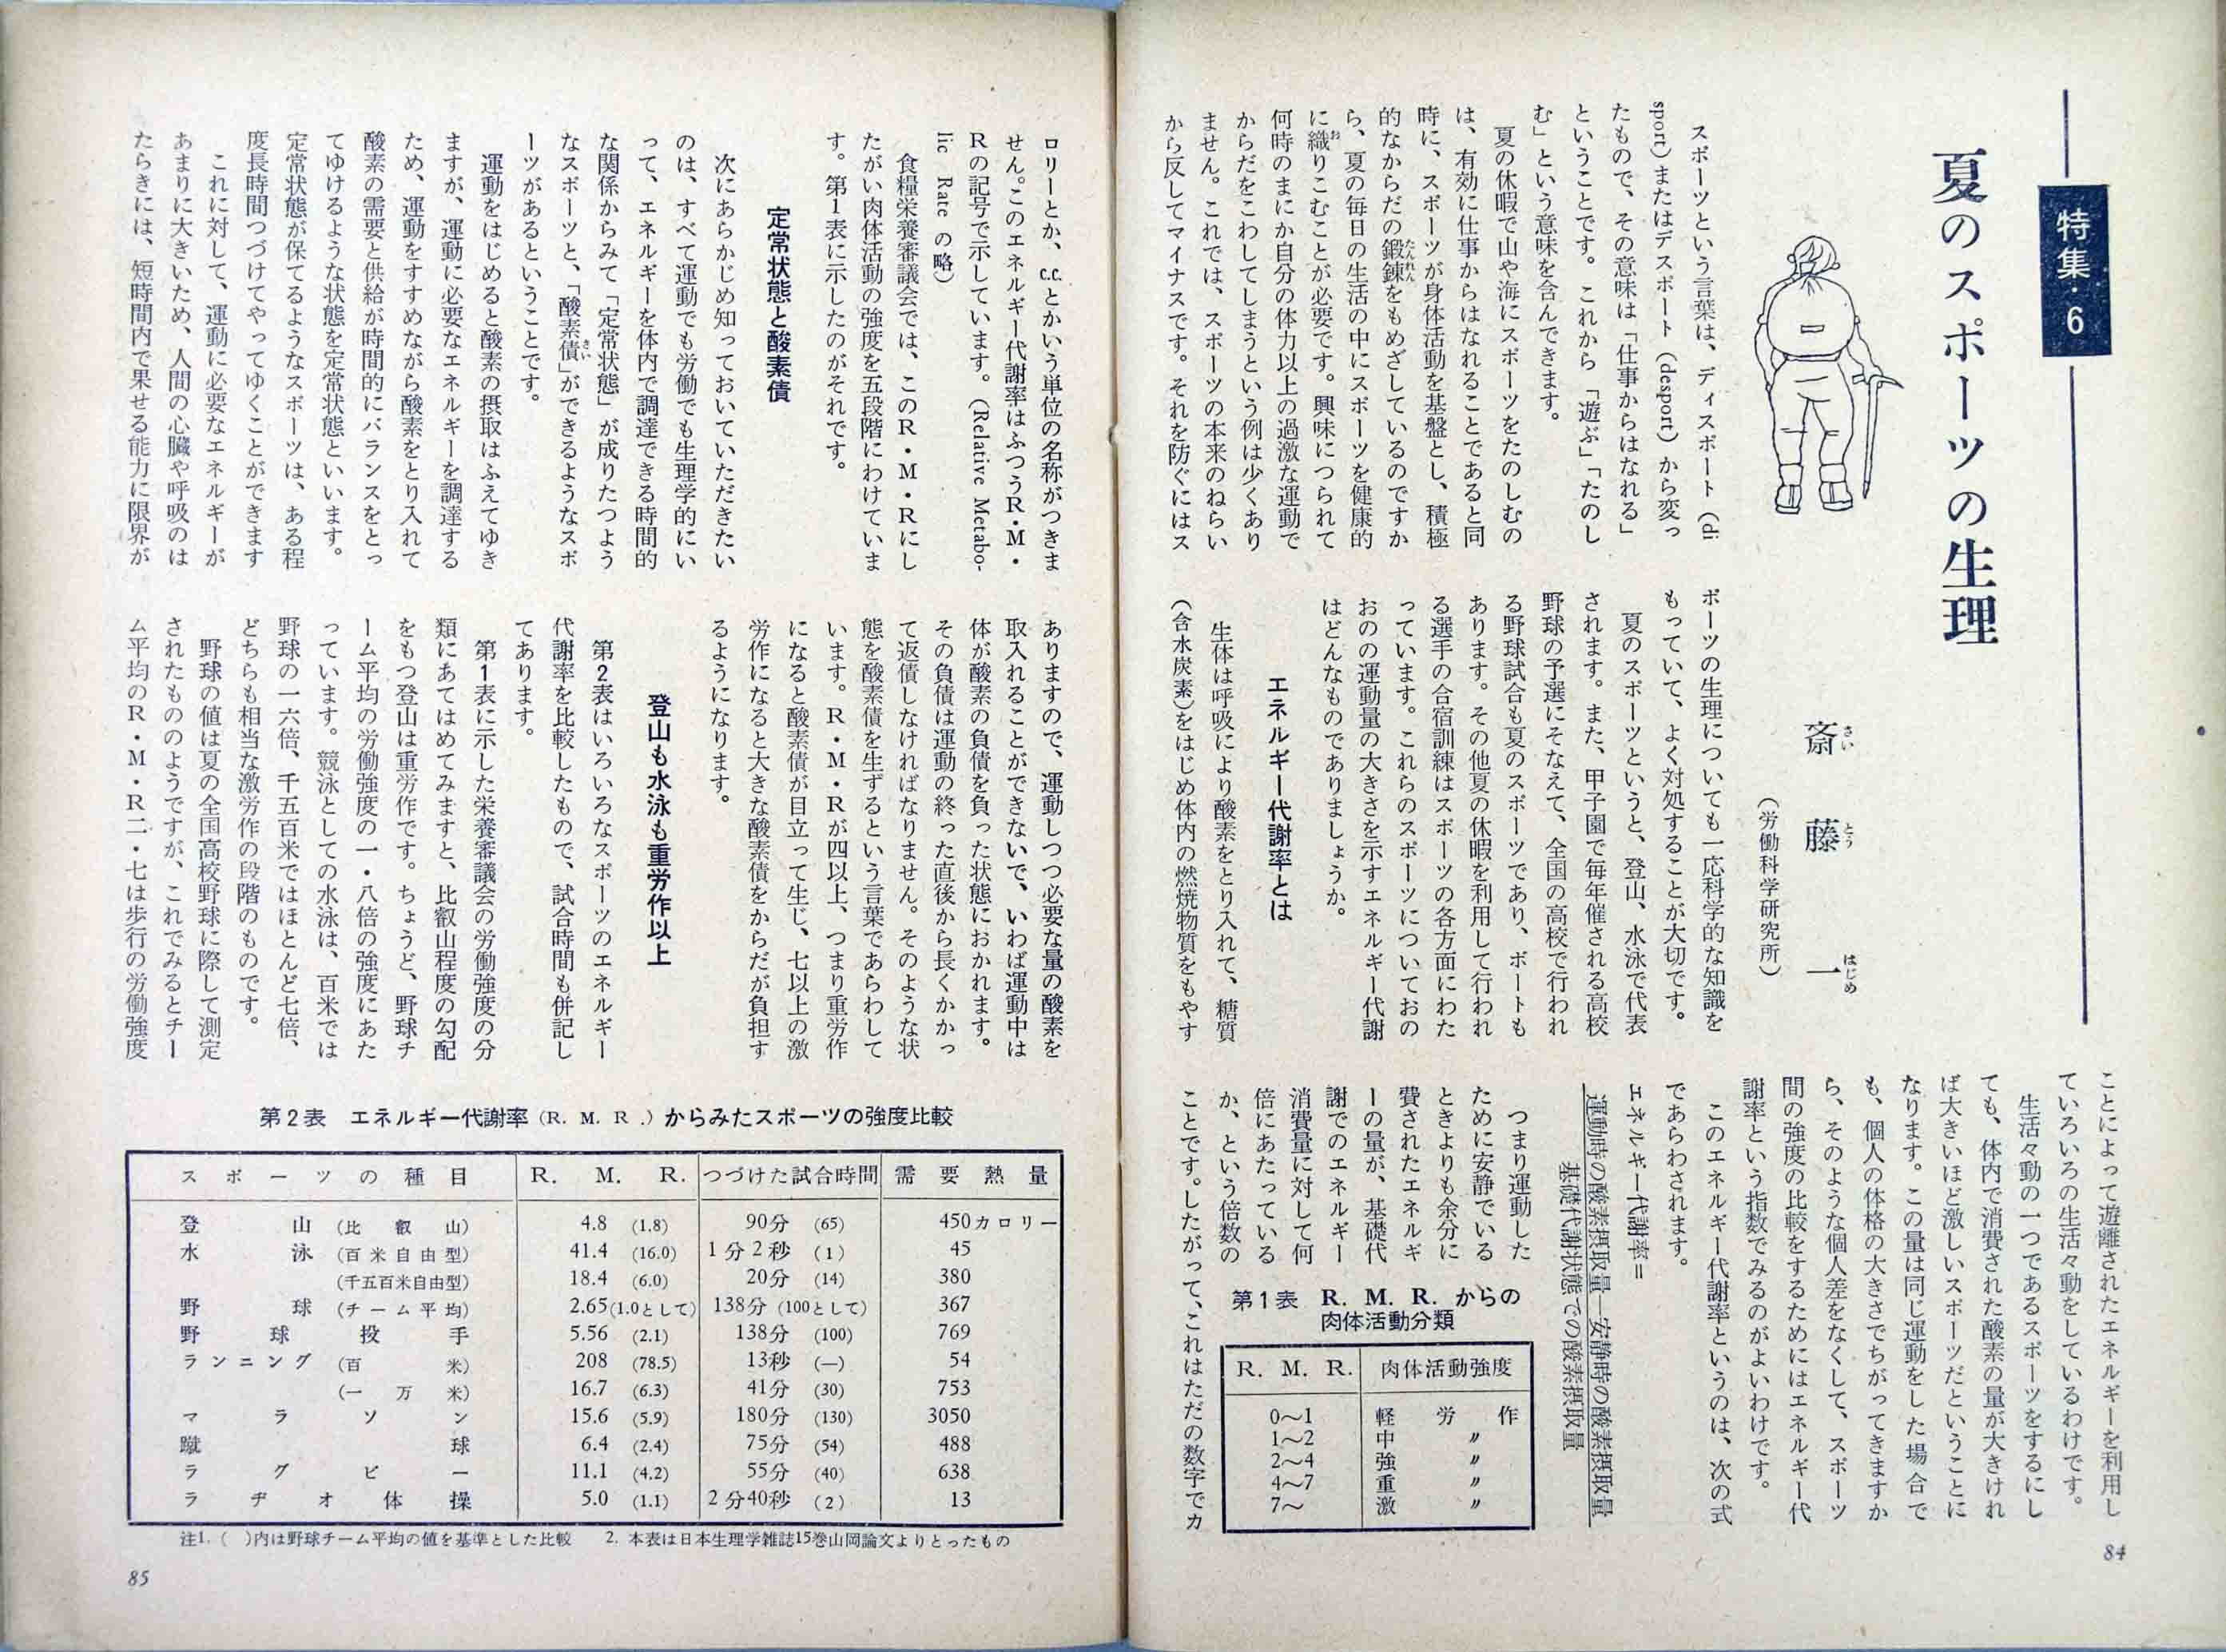 特集・6
夏のスポーツの生理
斎藤一
さい とう はじめ
（労働科学研究所）
スポーツという言葉は、ディスポート（di-
sport）またはデスポート（desport）から変っ
たもので、その意味は「仕事からはなれる」
ということです。これから「遊ぶ」「たのし
む」という意味を含んできます。
夏の休暇で山や海にスポーツをたのしむの
は、有効に仕事からはなれることであると同
時に、スポーツが身体活動を基盤とし、積極
的なからだの鍛錬をもめざしているのですか
たんれん
ら、夏の毎日の生活の中にスポーツを健康的
に織りこむことが必要です。興味につられて
お
何時のまにか自分の体力以上の過激な運動で
からだをこわしてしまうという例は少くあり
ません。これでは、スポーツの本来のねらい
から反してマイナスです。それを防ぐにはス
ポーツの生理についても一応科学的な知識を
もっていて、よく対処することが大切です。
夏のスポーツというと、登山、水泳で代表
されます。また、甲子園で毎年催される高校
野球の予選にそなえて、全国の高校で行われ
る野球試合も夏のスポーツであり、ボートも
あります。その他夏の休暇を利用して行われ
る選手の合宿訓練はスポーツの各方面にわた
っています。これらのスポーツについておの
おのの運動量の大きさを示すエネルギー代謝
はどんなものでありましょうか。
エネルギー代謝率とは
生体は呼吸により酸素をとり入れて、糖質
（含水炭素）をはじめ体内の燃焼物質をもやす
ことによって遊離されたエネルギーを利用し
ていろいろの生活々動をしているわけです。
生活々動の一つであるスポーツをするにし
ても、体内で消費された酸素の量が大きけれ
ば大きいほど激しいスポーツだということに
なります。この量は同じ運動をした場合で
も、個人の体格の大きさでちがってきますか
ら、そのような個人差をなくして、スポーツ
間の強度の比較をするためにはエネルギー代
謝率という指数でみるのがよいわけです。
このエネルギー代謝率というのは、次の式
であらわされます。
エネルギー代謝率＝
運動時の酸素摂取量―安静時の酸素摂取量
基礎代謝状態での酸素摂取量
つまり運動した
ために安静でいる
ときよりも余分に
費されたエネルギ
ーの量が、基礎代
謝でのエネルギー
消費量に対して何
倍にあたっている
か、という倍数の
ことです。したがって、これはただの数字でカ
第1表 R. M. R. からの
肉体活動分類
R. M. R. 肉体活動強度
0～1 軽労作
1～2 中 〃
2～4 強 〃
4～7 重 〃
7～ 激 〃
84
ロリーとか、c.c.とかいう単位の名称がつきま
せん。このエネルギー代謝率はふつうR・M・
Rの記号で示しています。（Relative Metabo-
lic Rate の略）
食糧栄養審議会では、このR・M・Rにし
たがい肉体活動の強度を五段階にわけていま
す。第1表に示したのがそれです。
定常状態と酸素債
次にあらかじめ知っておいていただきたい
のは、すべて運動でも労働でも生理学的にい
って、エネルギーを体内で調達できる時間的
な関係からみて「定常状態」が成りたつよう
なスポーツと、「酸素債」ができるようなスポ
さい
ーツがあるということです。
運動をはじめると酸素の摂取はふえてゆき
ますが、運動に必要なエネルギーを調達する
ため、運動をすすめながら酸素をとり入れて
酸素の需要と供給が時間的にバランスをとっ
てゆけるような状態を定常状態といいます。
定常状態が保てるようなスポーツは、ある程
度長時間つづけてやってゆくことができます
これに対して、運動に必要なエネルギーが
あまりに大きいため、人間の心臓や呼吸のは
たらきには、短時間内で果せる能力に限界が
ありますので、運動しつつ必要な量の酸素を
取入れることができないで、いわば運動中は
体が酸素の負債を負った状態におかれます。
その負債は運動の終った直後から長くかかっ
て返債しなければなりません。そのような状
態を酸素債を生ずるという言葉であらわして
います。R・M・Rが四以上、つまり重労作
になると酸素債が目立って生じ、七以上の激
労作になると大きな酸素債をからだが負担す
るようになります。
登山も水泳も重労作以上
第2表はいろいろなスポーツのエネルギー
代謝率を比較したもので、試合時間も併記し
てあります。
第1表に示した栄養審議会の労働強度の分
類にあてはめてみますと、比叡山程度の勾配
をもつ登山は重労作です。ちょうど、野球チ
ーム平均の労働強度の一・八倍の強度にあた
っています。競泳としての水泳は、百米では
野球の一六倍、千五百米ではほとんど七倍、
どちらも相当な激労作の段階のものです。
野球の値は夏の全国高校野球に際して測定
されたもののようですが、これでみるとチー
ム平均のR・M・R二・七は歩行の労働強度
第2表 エネルギー代謝率（R. M. R.）からみたスポーツの強度比較
スポーツの種目 R. M. R. つづけた試合時間 需要熱量
登山（比叡山） 4.8 (1.8) 90分 (65) 450カロリー
水泳（百米自由型） 41.4 (16.0) 1分2秒 (1) 45
（千五百米自由型） 18.4 (6.0) 20分 (14) 380
野球（チーム平均） 2.65(1.0として) 138分 (100として) 367
野球投手 5.56 (2.1) 138分 (100) 769
ランニング（百米） 208 (78.5) 13秒 (―) 54
（一万米） 16.7 (6.3) 41分 (30) 753
マラソン 15.6 (5.9) 180分 (130) 3050
蹴球 6.4 (2.4) 75分 (54) 488
ラグビー 11.1 (4.2) 55分 (40) 638
ラヂオ体操 5.0 (1.1) 2分40秒 (2) 13
注1. （ ）内は野球チーム平均の値を基準とした比較 2. 本表は日本生理学雑誌15巻山岡論文よりとったもの
85